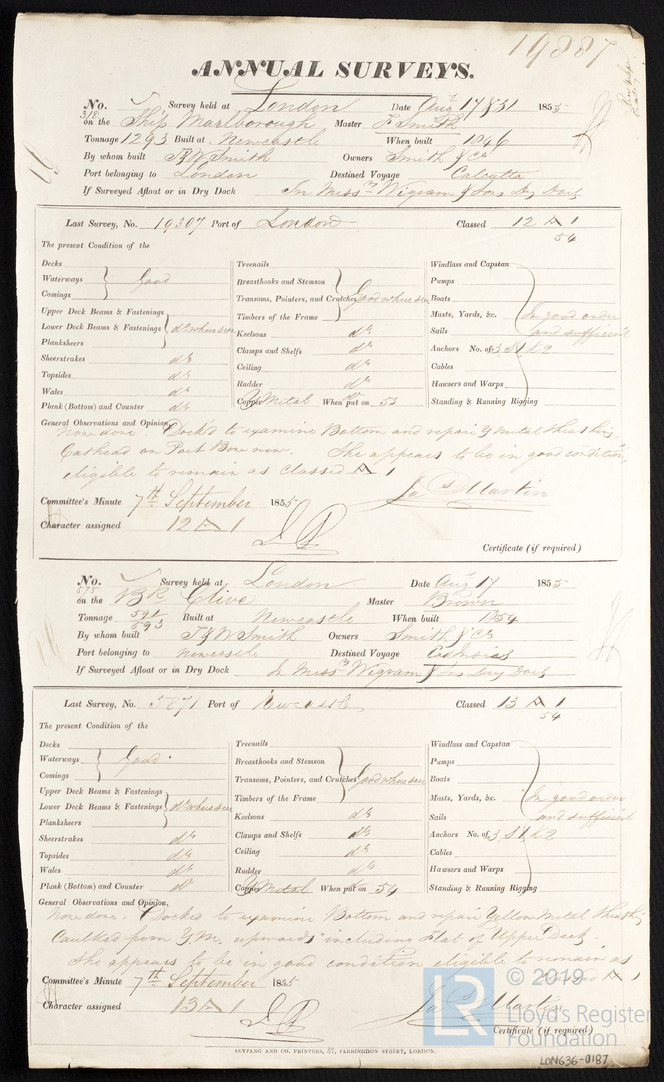 19887
ANNUAL SURVEYS.
No. 318 Survey held at London Date Augt 17 & 31 1855
on the Ship Marlborough Master F Smith
Tonnage 1293 Built at Newcastle When built 1846
By whom built T & W Smith Owners Smith & Co
Port belonging to London Destined Voyage Calcutta
If Surveyed Afloat or in Dry Dock In Messrs Wigram & Sons Dry Dock
Last Survey, No. 19307 Port of London Classed 12 A 1
54
The present Condition of the
Decks
Waterways Good
Comings
Upper Deck Beams & Fastenings
Lower Deck Beams & Fastenings do where seen
Planksheers
Sheerstrakes do
Topsides do
Wales do
Plank (Bottom) and Counter do
Treenails
Breasthooks and Stemson
Transoms, Pointers, and Crutches Good where seen
Timbers of the Frame
Keelsons do
Clamps and Shelfs do
Ceiling do
Rudder do
Copper Y Metal When put on 53
Windlass and Capstan
Pumps
Boats
Masts, Yards, &c. In good order
Sails and sufficient
Anchors No. of 3, S1, K2
Cables
Hawsers and Warps
Standing & Running Rigging
General Observations and Opinion,
Now done. Docked to examine Bottom and repair Y metal Sheathing,
Cathead on Port Bow new. She appears to be in good condition,
eligible to remain as classed A 1
Jas Martin
Committee's Minute 7th September 1855
Character assigned 12 A 1
Certificate (if required)
No. 575 Survey held at London Date Aug 17 1855
on the Bk Clive Master Brown
Tonnage 591/593 Built at Newcastle When built 1854
By whom built T & W Smith Owners Smith & Co
Port belonging to Newcastle Destined Voyage Ed Indies
If Surveyed Afloat or in Dry Dock In Messrs Wigram & Sons Dry Dock
Last Survey, No. 5871 Port of Newcastle Classed 13 A 1
54
The present Condition of the
Decks
Waterways Good
Comings
Upper Deck Beams & Fastenings
Lower Deck Beams & Fastenings do where seen
Planksheers
Sheerstrakes do
Topsides do
Wales do
Plank (Bottom) and Counter do
Treenails
Breasthooks and Stemson
Transoms, Pointers, and Crutches Good where seen
Timbers of the Frame
Keelsons do
Clamps and Shelfs do
Ceiling do
Rudder do
Copper Y Metal When put on 54
Windlass and Capstan
Pumps
Boats
Masts, Yards, &c. In good order
Sails and sufficient
Anchors No. of 3, S1, K2
Cables
Hawsers and Warps
Standing & Running Rigging
General Observations and Opinion,
Now done. Docked to examine Bottom and repair Yellow Metal Sheathg
Caulked from Y.M. upwards including Flat of Upper Deck.
She appears to be in good condition eligible to remain as
A 1
Committee's Minute 7th September 1855
Jas Martin
Character assigned 13 A 1
Certificate (if required)
SEYFANG AND CO. PRINTERS, 57, FARRINGDON STREET, LONDON.
LR © 2019
Lloyd's Register
Foundation
LON636-0187